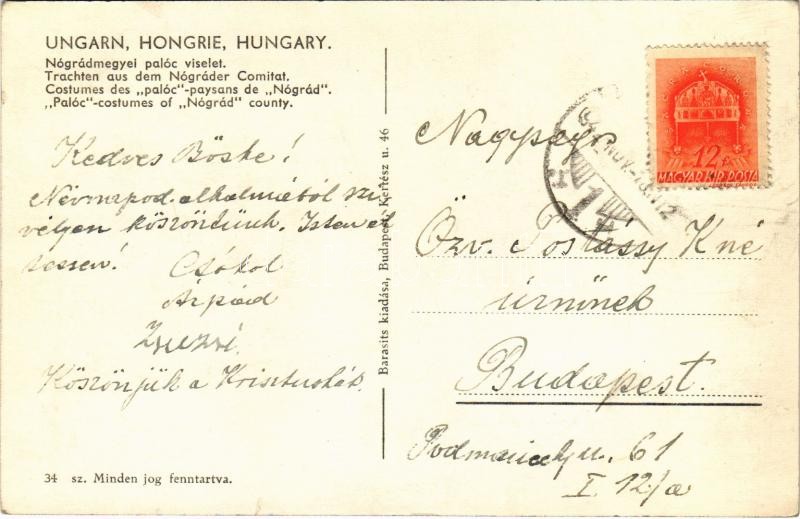 UNGARN, HONGRIE, HUNGARY.
Nógrádmegyei palóc viselet.
Trachten aus dem Nógráder Comitat.
Costumes des „palóc"-paysans de „Nógrád".
„Palóc"-costumes of „Nógrád" county.
Kedves Böske!
Névnapod alkalmából szi-
vélyen köszöntünk. Isten él
tessen!
Csókol
Árpád
Zsuzsi.
Köszönjük a
34 sz. Minden jog fenntartva.
Barasits kiadása, Budapest, Kertész u. 46
12 f.
MAGYAR KIR. POSTA
NOV.
Nagys.
Özv. Kné
úrnőnek
Budapest.
u. 61
I. 12/a